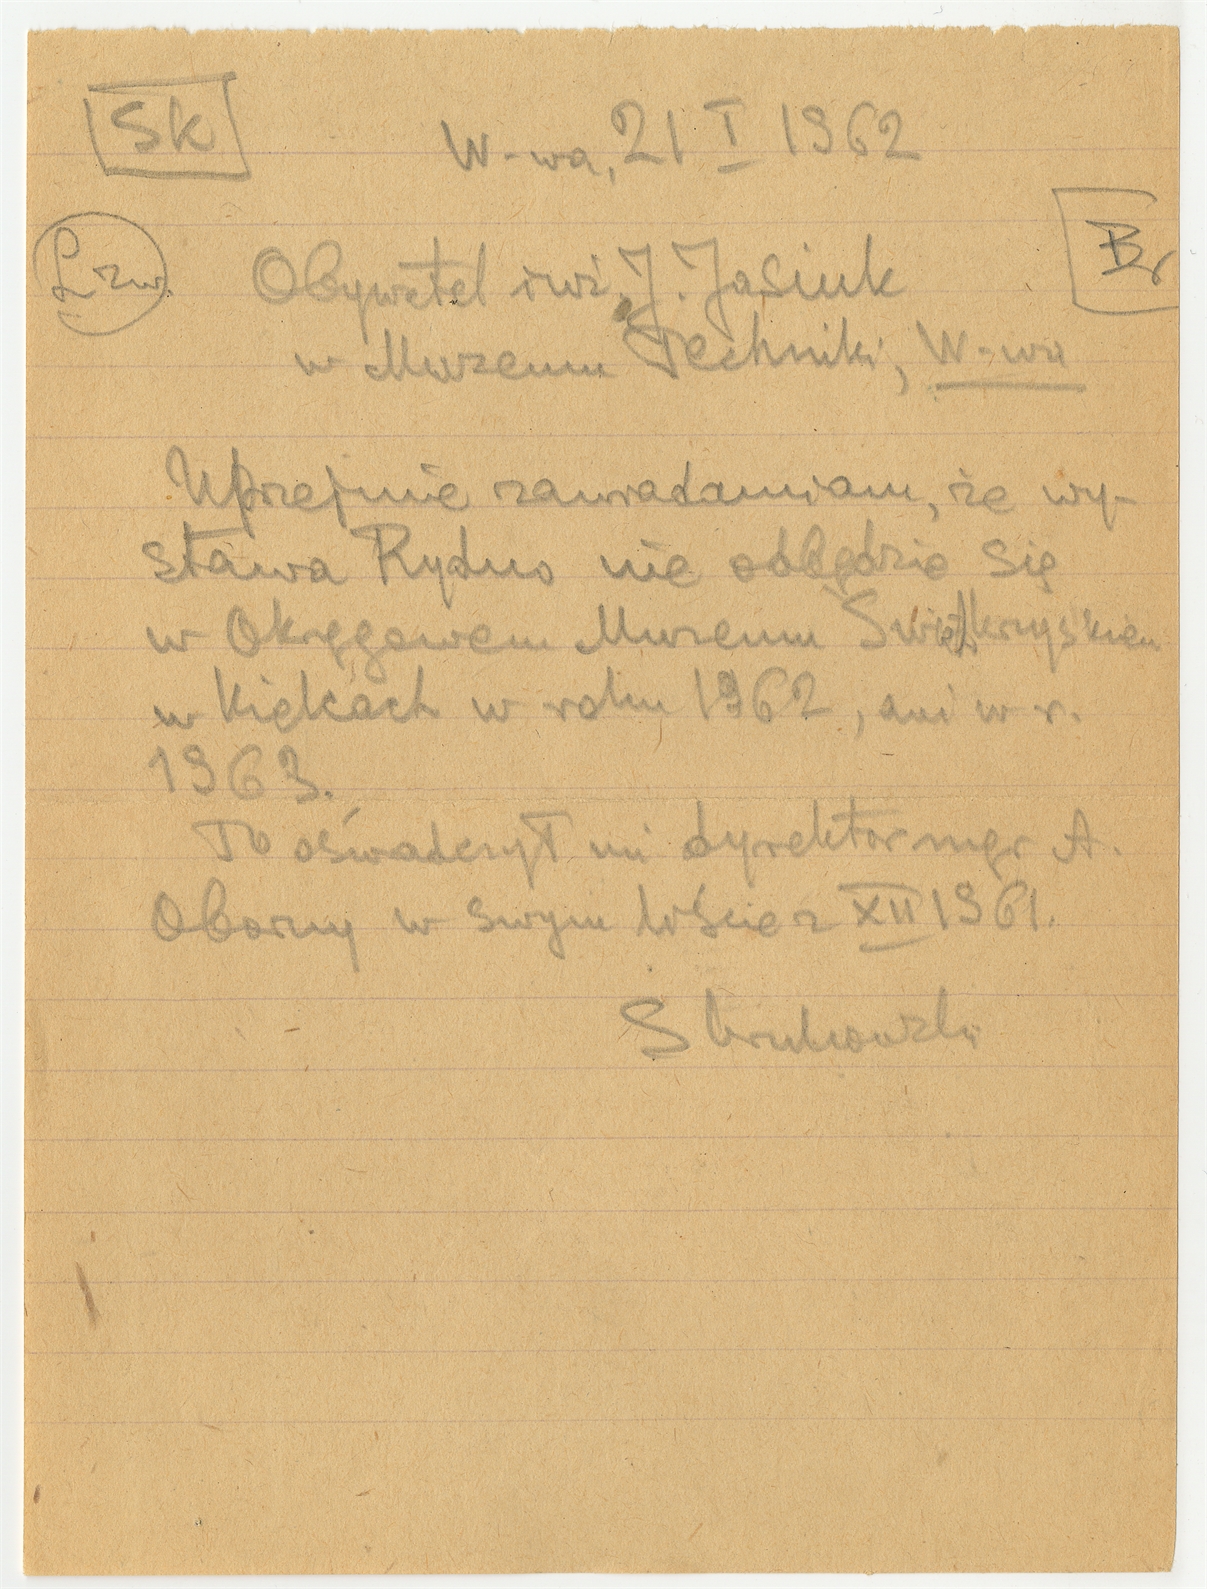 Sk
W-wa, 21 I 1962
L zw.
Br
Obywatel inż. J. Jasiuk
w Muzeum Techniki, W-wa
Uprzejmie zawiadamiam, że wy-
stawa Rydno nie odbędzie się
w Okręgowem Muzeum Świętokrzyskiem
w Kielcach w roku 1962, ani w r.
1963.
To oświadczył mi dyrektor mgr A.
Oborny w swym liście z XII 1961.
S Krukowski